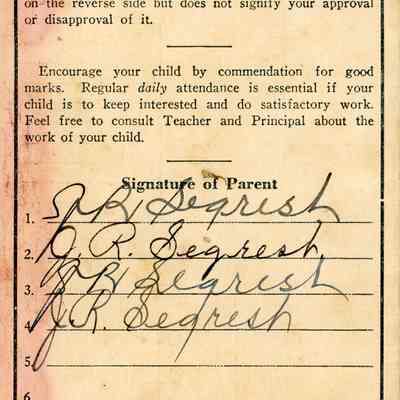 on the reverse side but does not signify your approval
or disapproval of it.
Encourage your child by commendation for good
marks. Regular daily attendance is essential if your
child is to keep interested and do satisfactory work.
Feel free to consult Teacher and Principal about the
work of your child.
Signature of Parent
1. J. R. Segrest
2. J. R. Segrest
3. J. R. Segrest
4. J. R. Segrest
5.
6